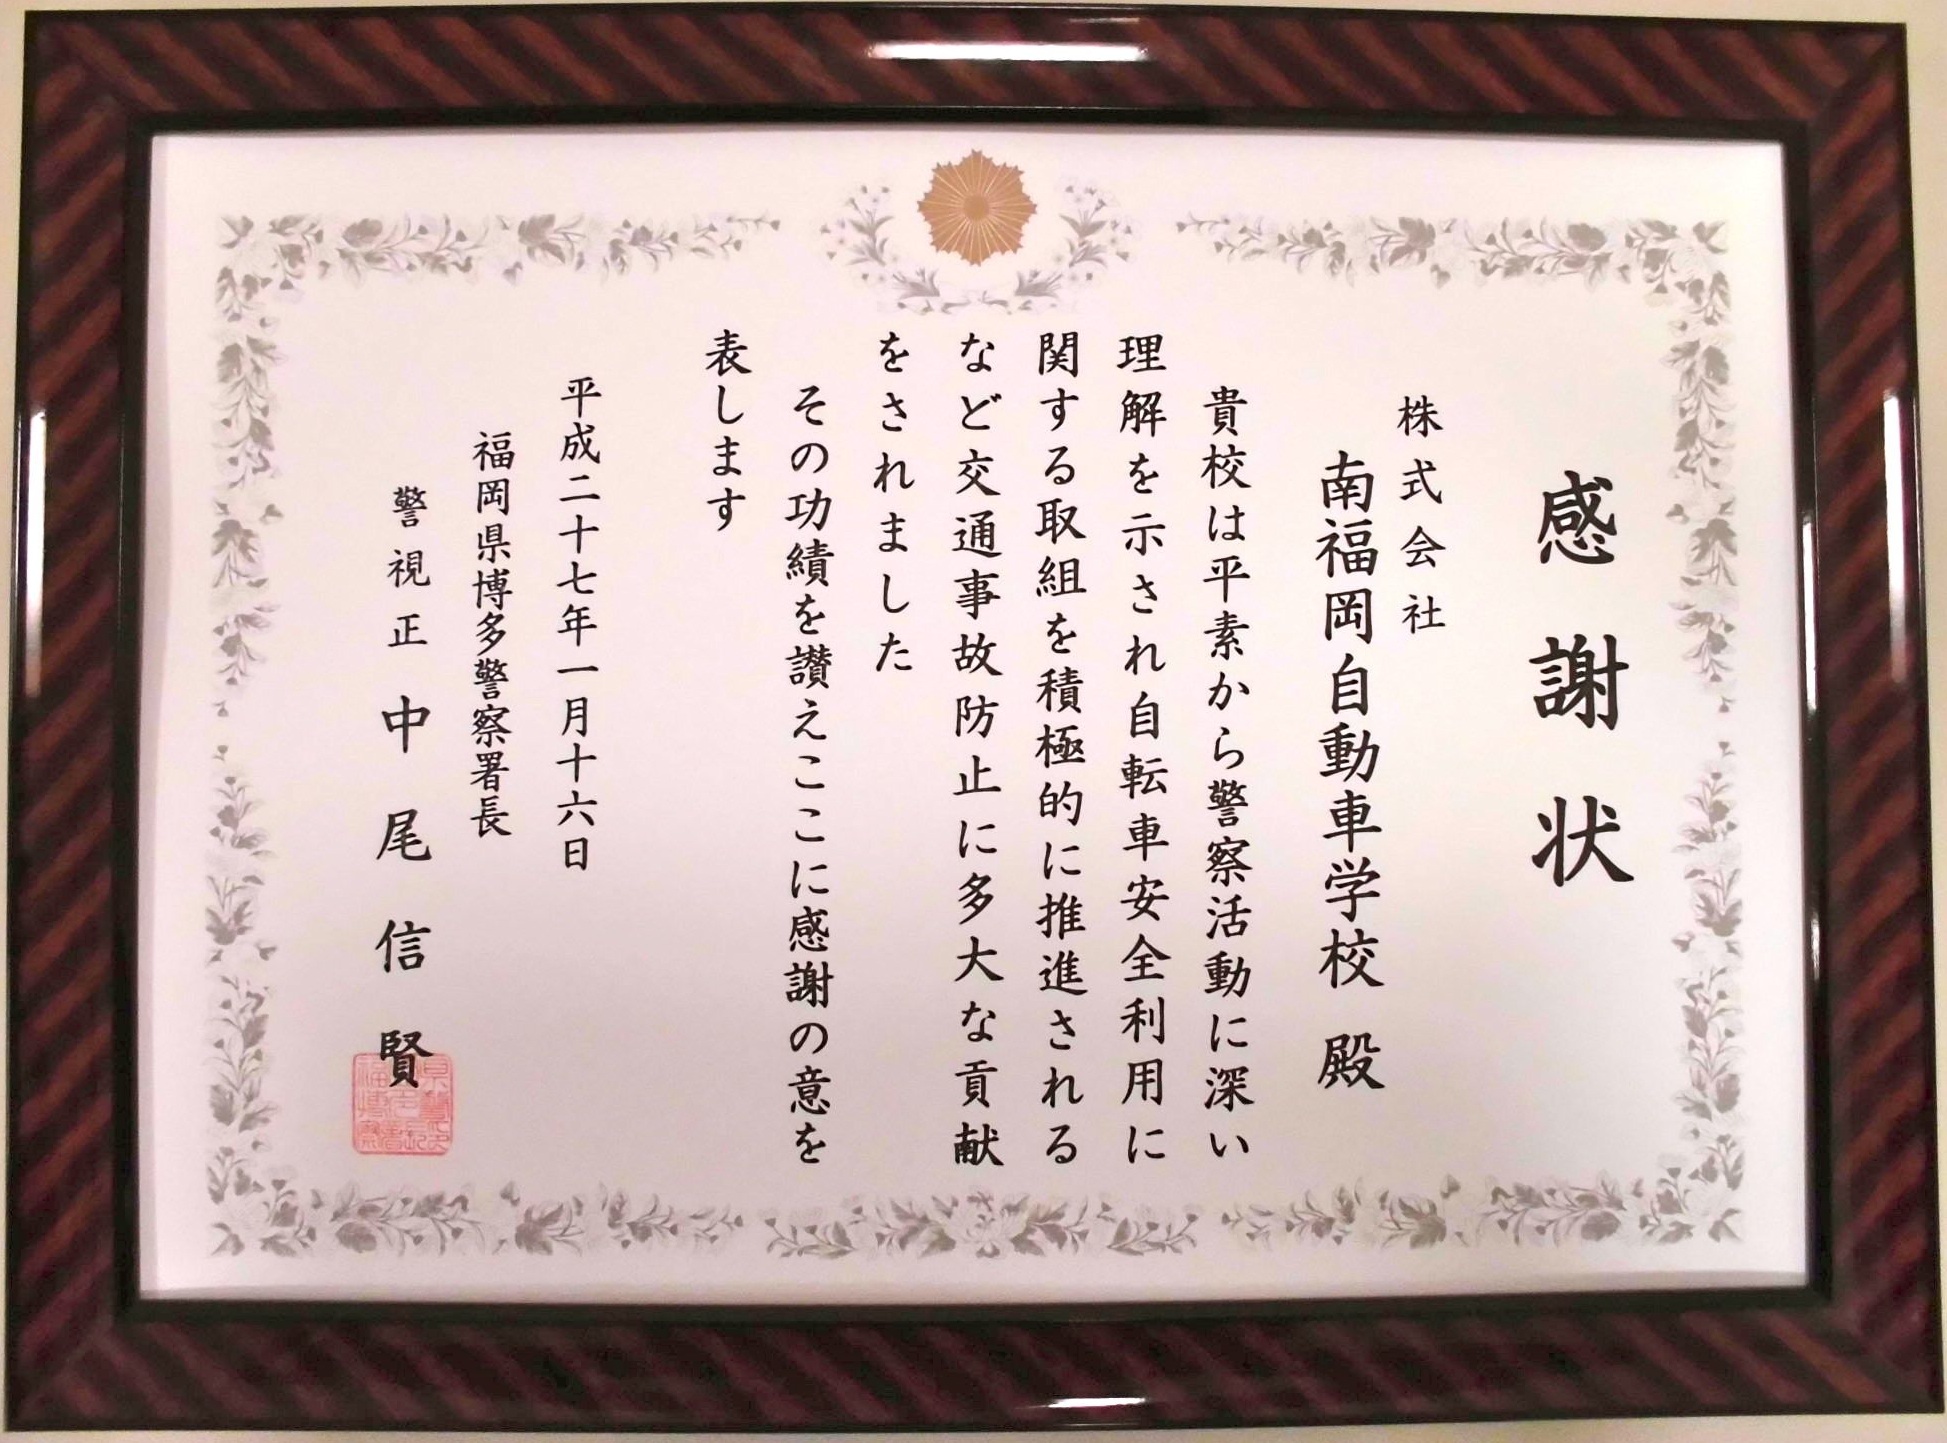 感謝状
株式会社
南福岡自動車学校 殿
貴校は平素から警察活動に深い
理解を示され自転車安全利用に
関する取組を積極的に推進される
など交通事故防止に多大な貢献
をされました
その功績を讃えここに感謝の意を
表します
平成二十七年一月十六日
福岡県博多警察署長
警視正 中尾信賢